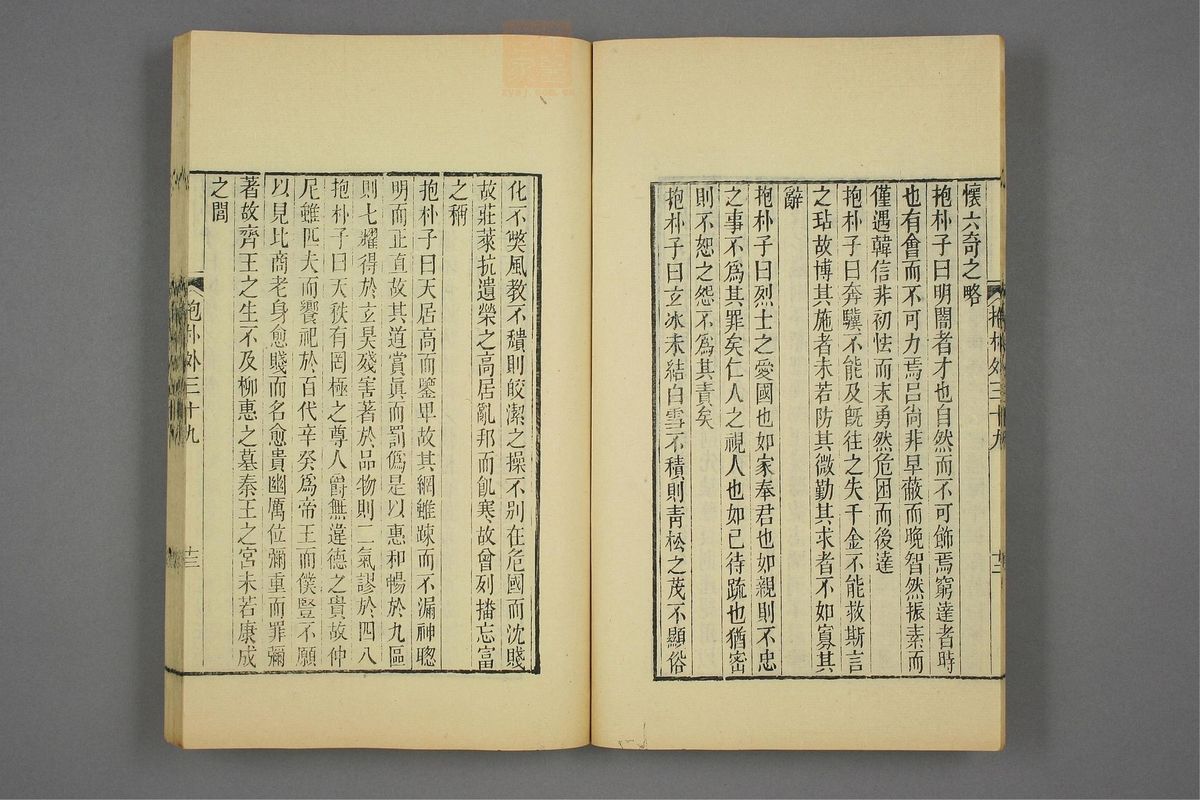 懷六奇之略
抱朴子曰明闇者才也自然而不可飾焉窮達者時
也有會而不可力焉呂尚非早蔽而晚智然振素而
僅遇韓信非初怯而末勇然危困而後達
抱朴子曰奔驥不能及旣往之失千金不能救斯言
之玷故博其施者未若防其微勤其求者不如寡其
辭
抱朴子曰烈士之愛國也如家奉君也如親則不忠
之事不爲其罪矣仁人之視人也如己待疏也猶密
則不恕之怨不爲其責矣
抱朴子曰玄冰未結白雪不積則靑松之茂不顯俗
抱朴外三十九
十二
化不弊風教不穨則皎潔之操不別在危國而沈賤
故莊萊抗遺榮之高居亂邦而飢寒故曾列播忘富
之稱
抱朴子曰天居高而鑒卑故其網雖疎而不漏神聰
明而正直故其道賞眞而罰僞是以惠和暢於九區
則七耀得於玄昊殘害著於品物則二氣謬於四八
抱朴子曰天秩有罔極之尊人爵無違德之貴故仲
尼雖匹夫而饗祀於百代辛癸爲帝王而僕豎不願
以見比商老身愈賤而名愈貴幽厲位彌重而罪彌
著故齊王之生不及柳惠之墓秦王之宮未若康成
之閭
抱朴外三十九
十三